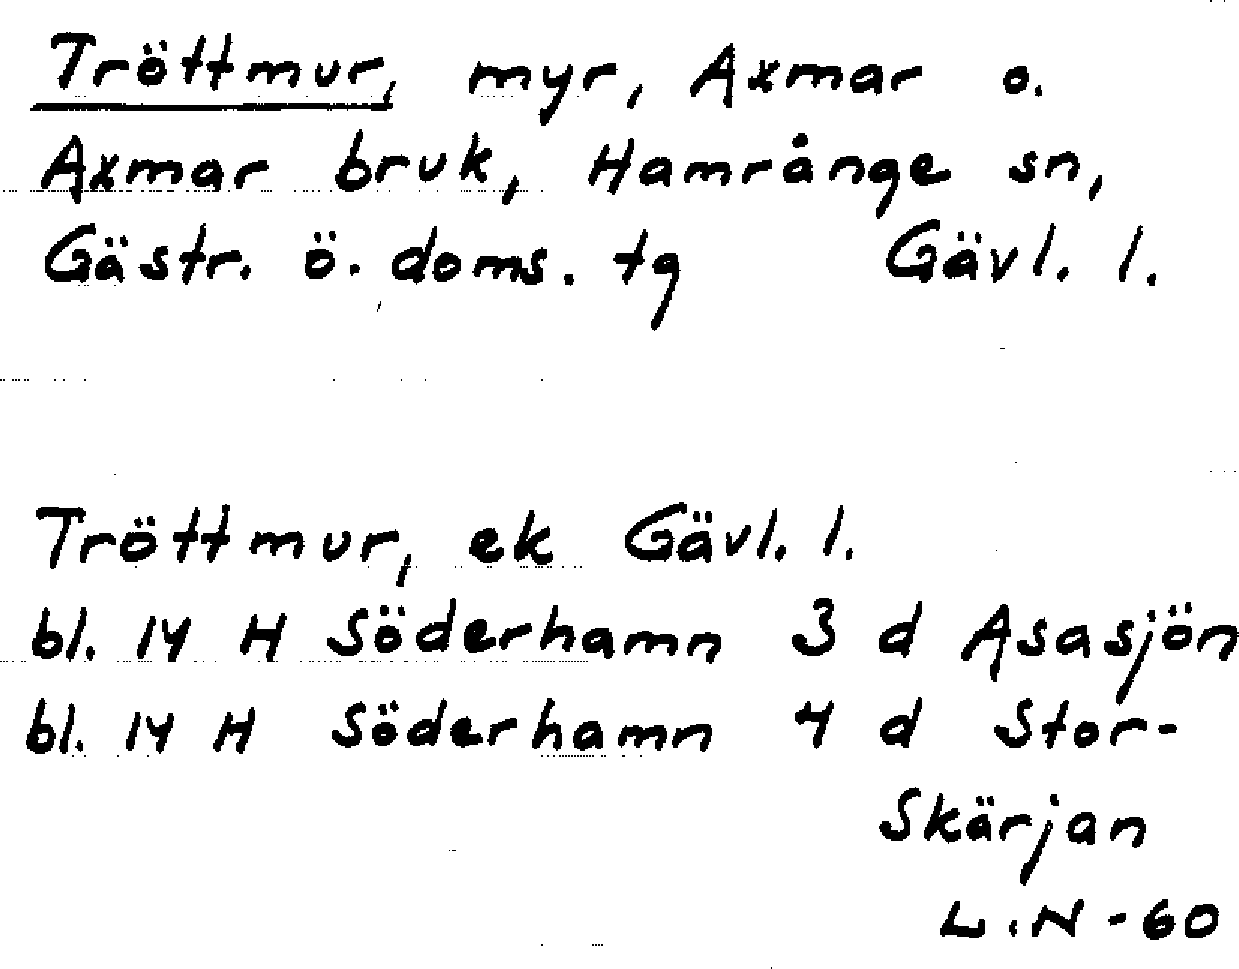 Tröttmur, myr, Axmar o.
Axmar bruk, Hamrånge sn,
Gästr. ö. doms. tg Gävl. l.
Tröttmur, ek Gävl. l.
bl. 14 H Söderhamn 3 d Asasjön
bl. 14 H Söderhamn 4 d Stor-
Skärjan
L.N-60